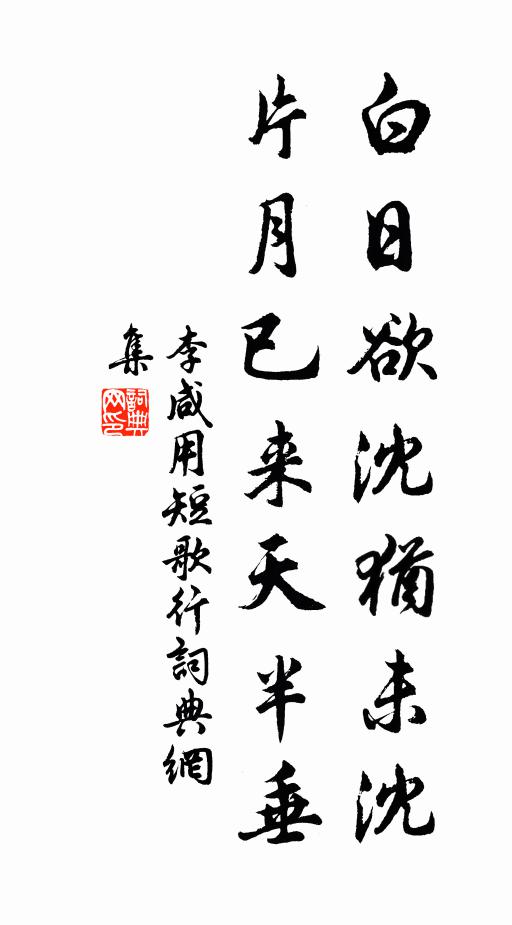 白日欲沈猶未沈
片月已来天半垂
李咸用短歌行詞典網
集
詞典
网印